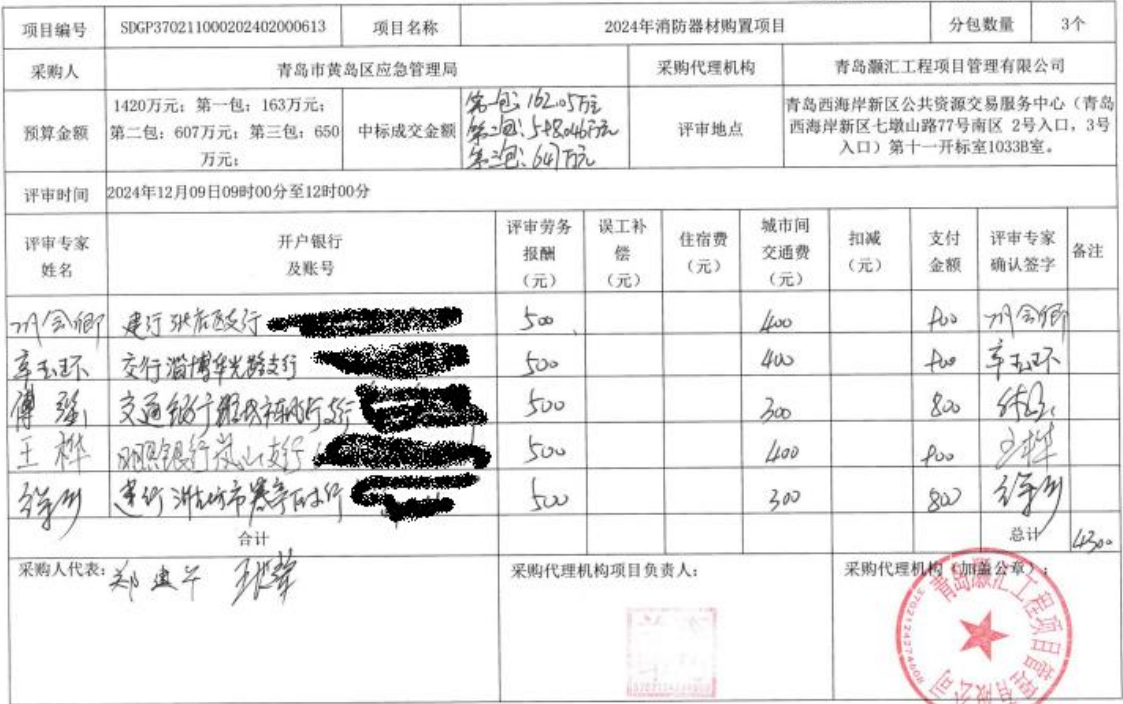 项目编号 SDGP370211000202402000613 项目名称 2024年消防器材购置项目 分包数量 3个
采购人 青岛市黄岛区应急管理局 采购代理机构 青岛灏汇工程项目管理有限公司
预算金额 1420万元；第一包：163万元；第二包：607万元；第三包：650万元； 中标成交金额 第一包：162.05万元 第二包：598.046万元 第三包：647万元 评审地点 青岛西海岸新区公共资源交易服务中心（青岛西海岸新区七墩山路77号南区 2号入口，3号入口）第十一开标室1033B室。
评审时间 2024年12月09日09时00分至12时00分
评审专家姓名 开户银行及账号 评审劳务报酬（元） 误工补偿（元） 住宿费（元） 城市间交通费（元） 扣减（元） 支付金额 评审专家确认签字 备注
建行张店区支行 500 400 900
辛玉环 交行淄博华光路支行 500 400 900 辛玉环
傅强 交通银行 支行 500 300 800 傅强
王桦 日照银行岚山支行 500 400 900 王桦
建行潍坊市寒亭 500 300 800
合计 总计 4300
采购人代表： 采购代理机构项目负责人： 采购代理机构（加盖公章）：
青岛灏汇工程项目管理有限公司